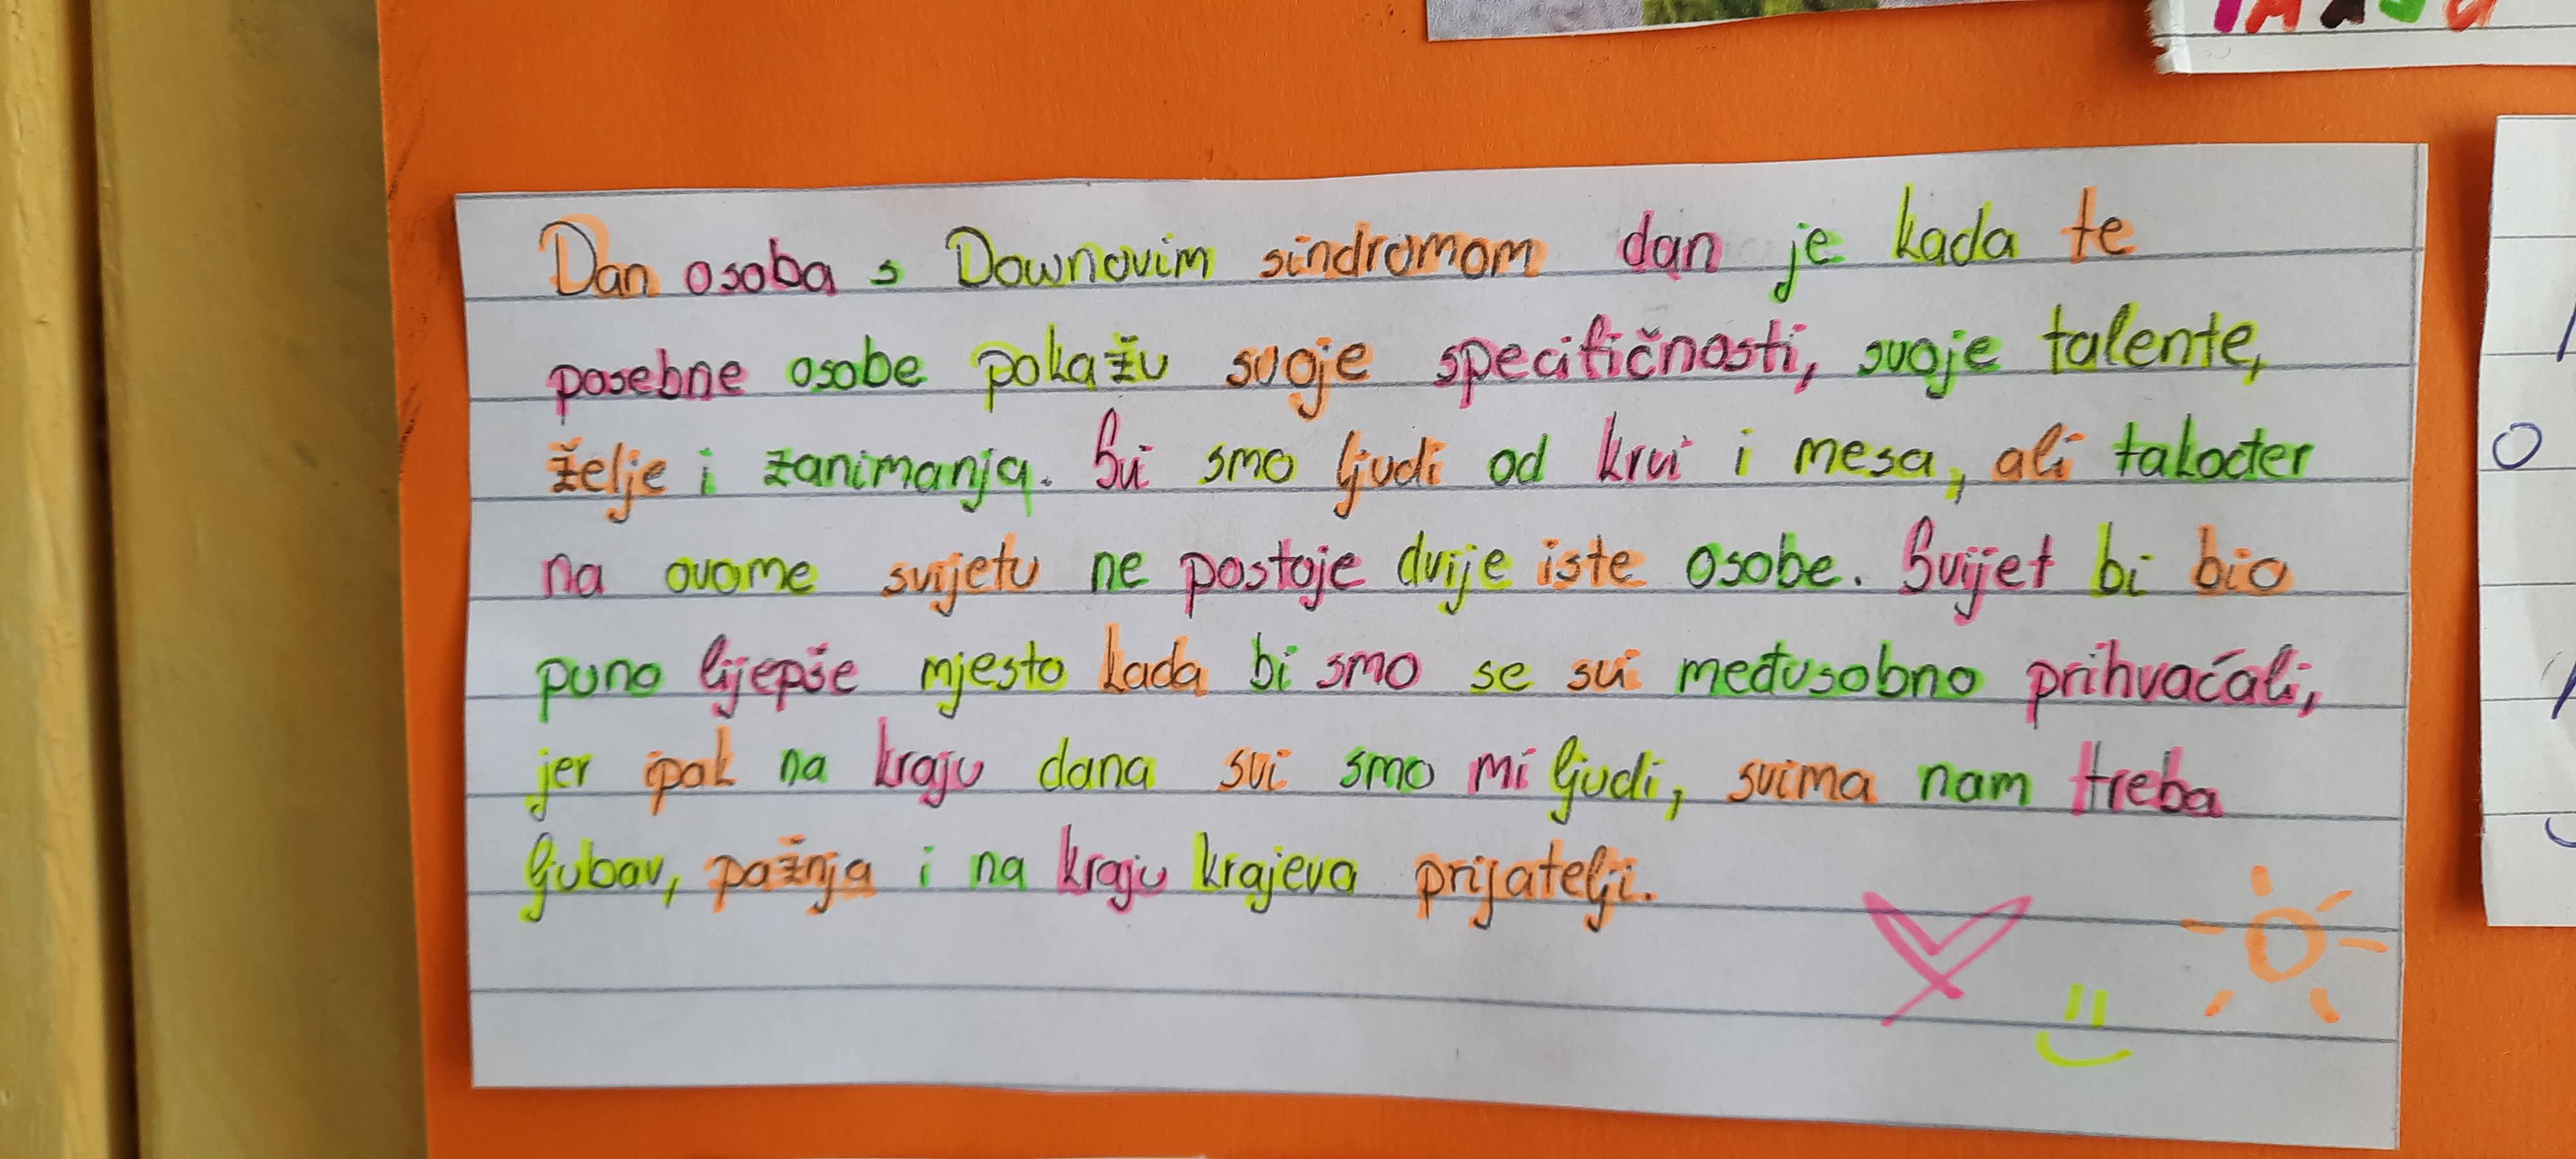 Dan osoba s Downovim sindromom dan je kada te
posebne osobe pokažu svoje specifičnosti, svoje talente,
želje i zanimanja. Svi smo ljudi od krvi i mesa, ali također
na ovome svijetu ne postoje dvije iste osobe. Svijet bi bio
puno ljepše mjesto kada bi smo se svi međusobno prihvaćali,
jer ipak na kraju dana svi smo mi ljudi, svima nam treba
ljubav, pažnja i na kraju krajeva prijatelji.